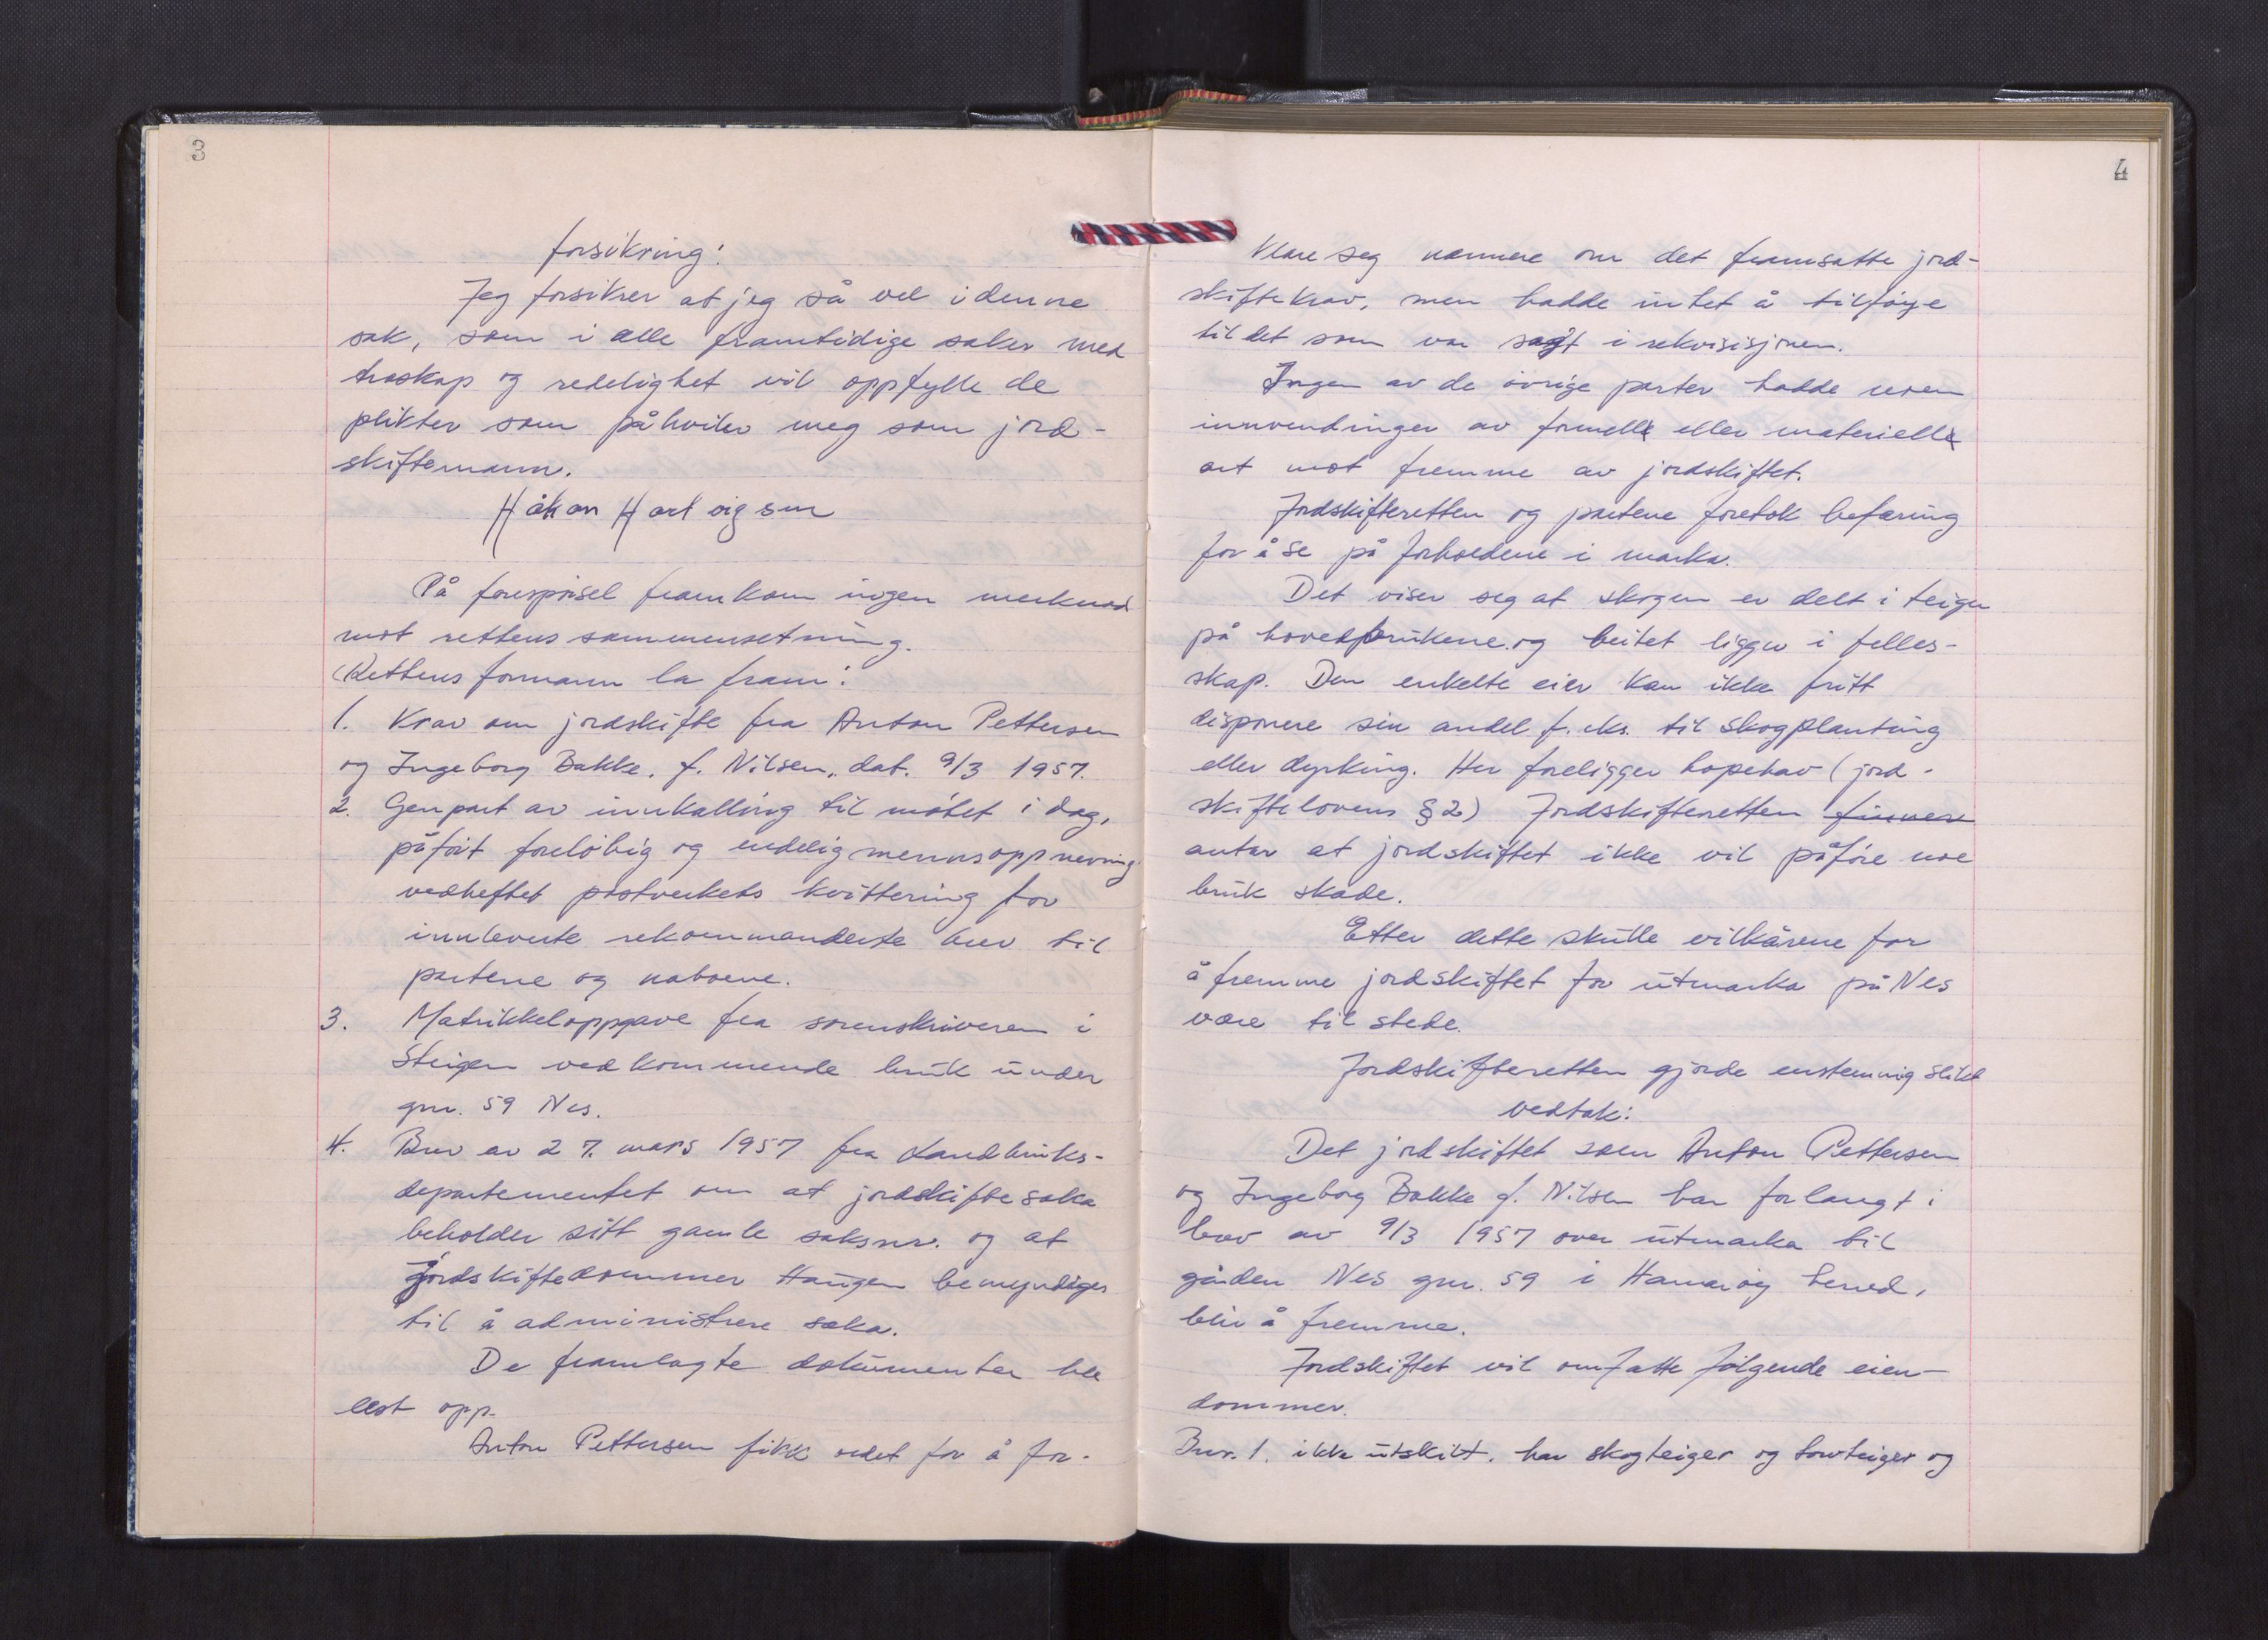 3
forsikring:
Jeg forsikrer at jeg så vel i denne
sak, som i alle framtidige saker med
troskap og redelighet vil oppfylle de
plikter som påhviler meg som jord-
skiftemann.
Håkon Hartvigsen
På forespørsel framkom ingen merknad
mot rettens sammensetning.
Rettens formann la fram:
1. Krav om jordskifte fra Anton Pettersen
og Ingeborg Bakke, f. Nilsen, dat. 9/3 1957.
2. Genpart av innkalling til møtet i dag,
påført foreløbig og endelig mennsoppnevning
vedheftet postverkets kvittering for
innleverte rekommanderte brev til
partene og naboene.
3. Matrikkeloppgave fra sorenskriveren i
Steigen vedkommende bruk under
gnr. 59 Nes.
4. Brev av 27. mars 1957 fra Landbruks-
departementet om at jordskiftesaka
beholder sitt gamle saksnr. og at
jordskiftedommer Haugen bemyndiges
til å administrere saka.
De framlagte dokumenter ble
lest opp.
Anton Pettersen fikk ordet for å for-
4
klare seg nærmere om det framsatte jord-
skiftekrav, men hadde intet å tilføye
til det som var sagt i rekvisisjonen.
Ingen av de øvrige parter hadde noen
innvendinger av formell eller materiell
art mot fremme av jordskiftet.
Jordskifteretten og partene foretok befaring
for å se på forholdene i marka.
Det viser seg at skogen er delt i teiger
på hovedbrukene og beitet ligger i felles-
skap. Den enkelte eier kan ikke fritt
disponere sin andel f. eks. til skogplanting
eller dyrking. Her foreligger hopehav (jord-
skiftelovens § 2) Jordskifteretten finner
antar at jordskiftet ikke vil påføre noe
bruk skade.
Etter dette skulle vilkårene for
å fremme jordskiftet for utmarka på Nes
være til stede.
Jordskifteretten gjorde enstemmig slikt
vedtak:
Det jordskiftet som Anton Pettersen
og Ingeborg Bakke f. Nilsen har forlangt i
brev av 9/3 1957 over utmarka til
gården Nes gnr. 59 i Hamarøy herred,
blir å fremme.
Jordskiftet vil omfatte følgende eien-
dommer.
Bnr. 1. ikke utskilt, har skogteiger og torvteiger og